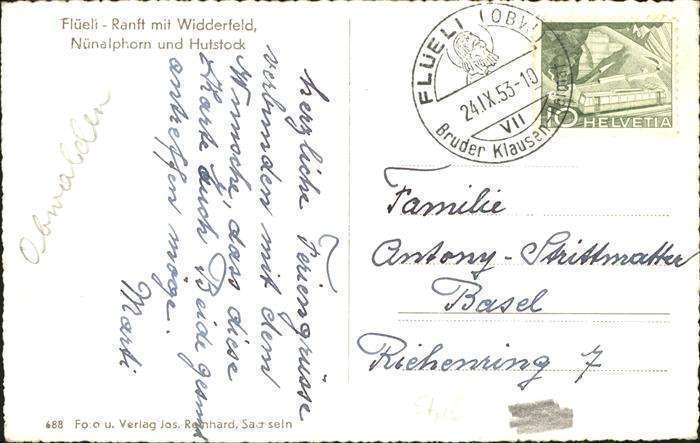 Flüeli - Ranft mit Widderfeld,
Nünalphorn und Hutstock
Obwalden
herzliche Feriengrüsse
verbunden mit dem
Wunsche, dass diese
Karte Euch Beide gesund
antreffen möge.
Marti
FLÜELI (OBW.)
24.IX.53-10
VII
Bruder Klausen-
10
HELVETIA
Familie
Antony - Strittmatter
Basel
Riehenring 7
688 Foto u. Verlag Jos. Reinhard, Sachseln